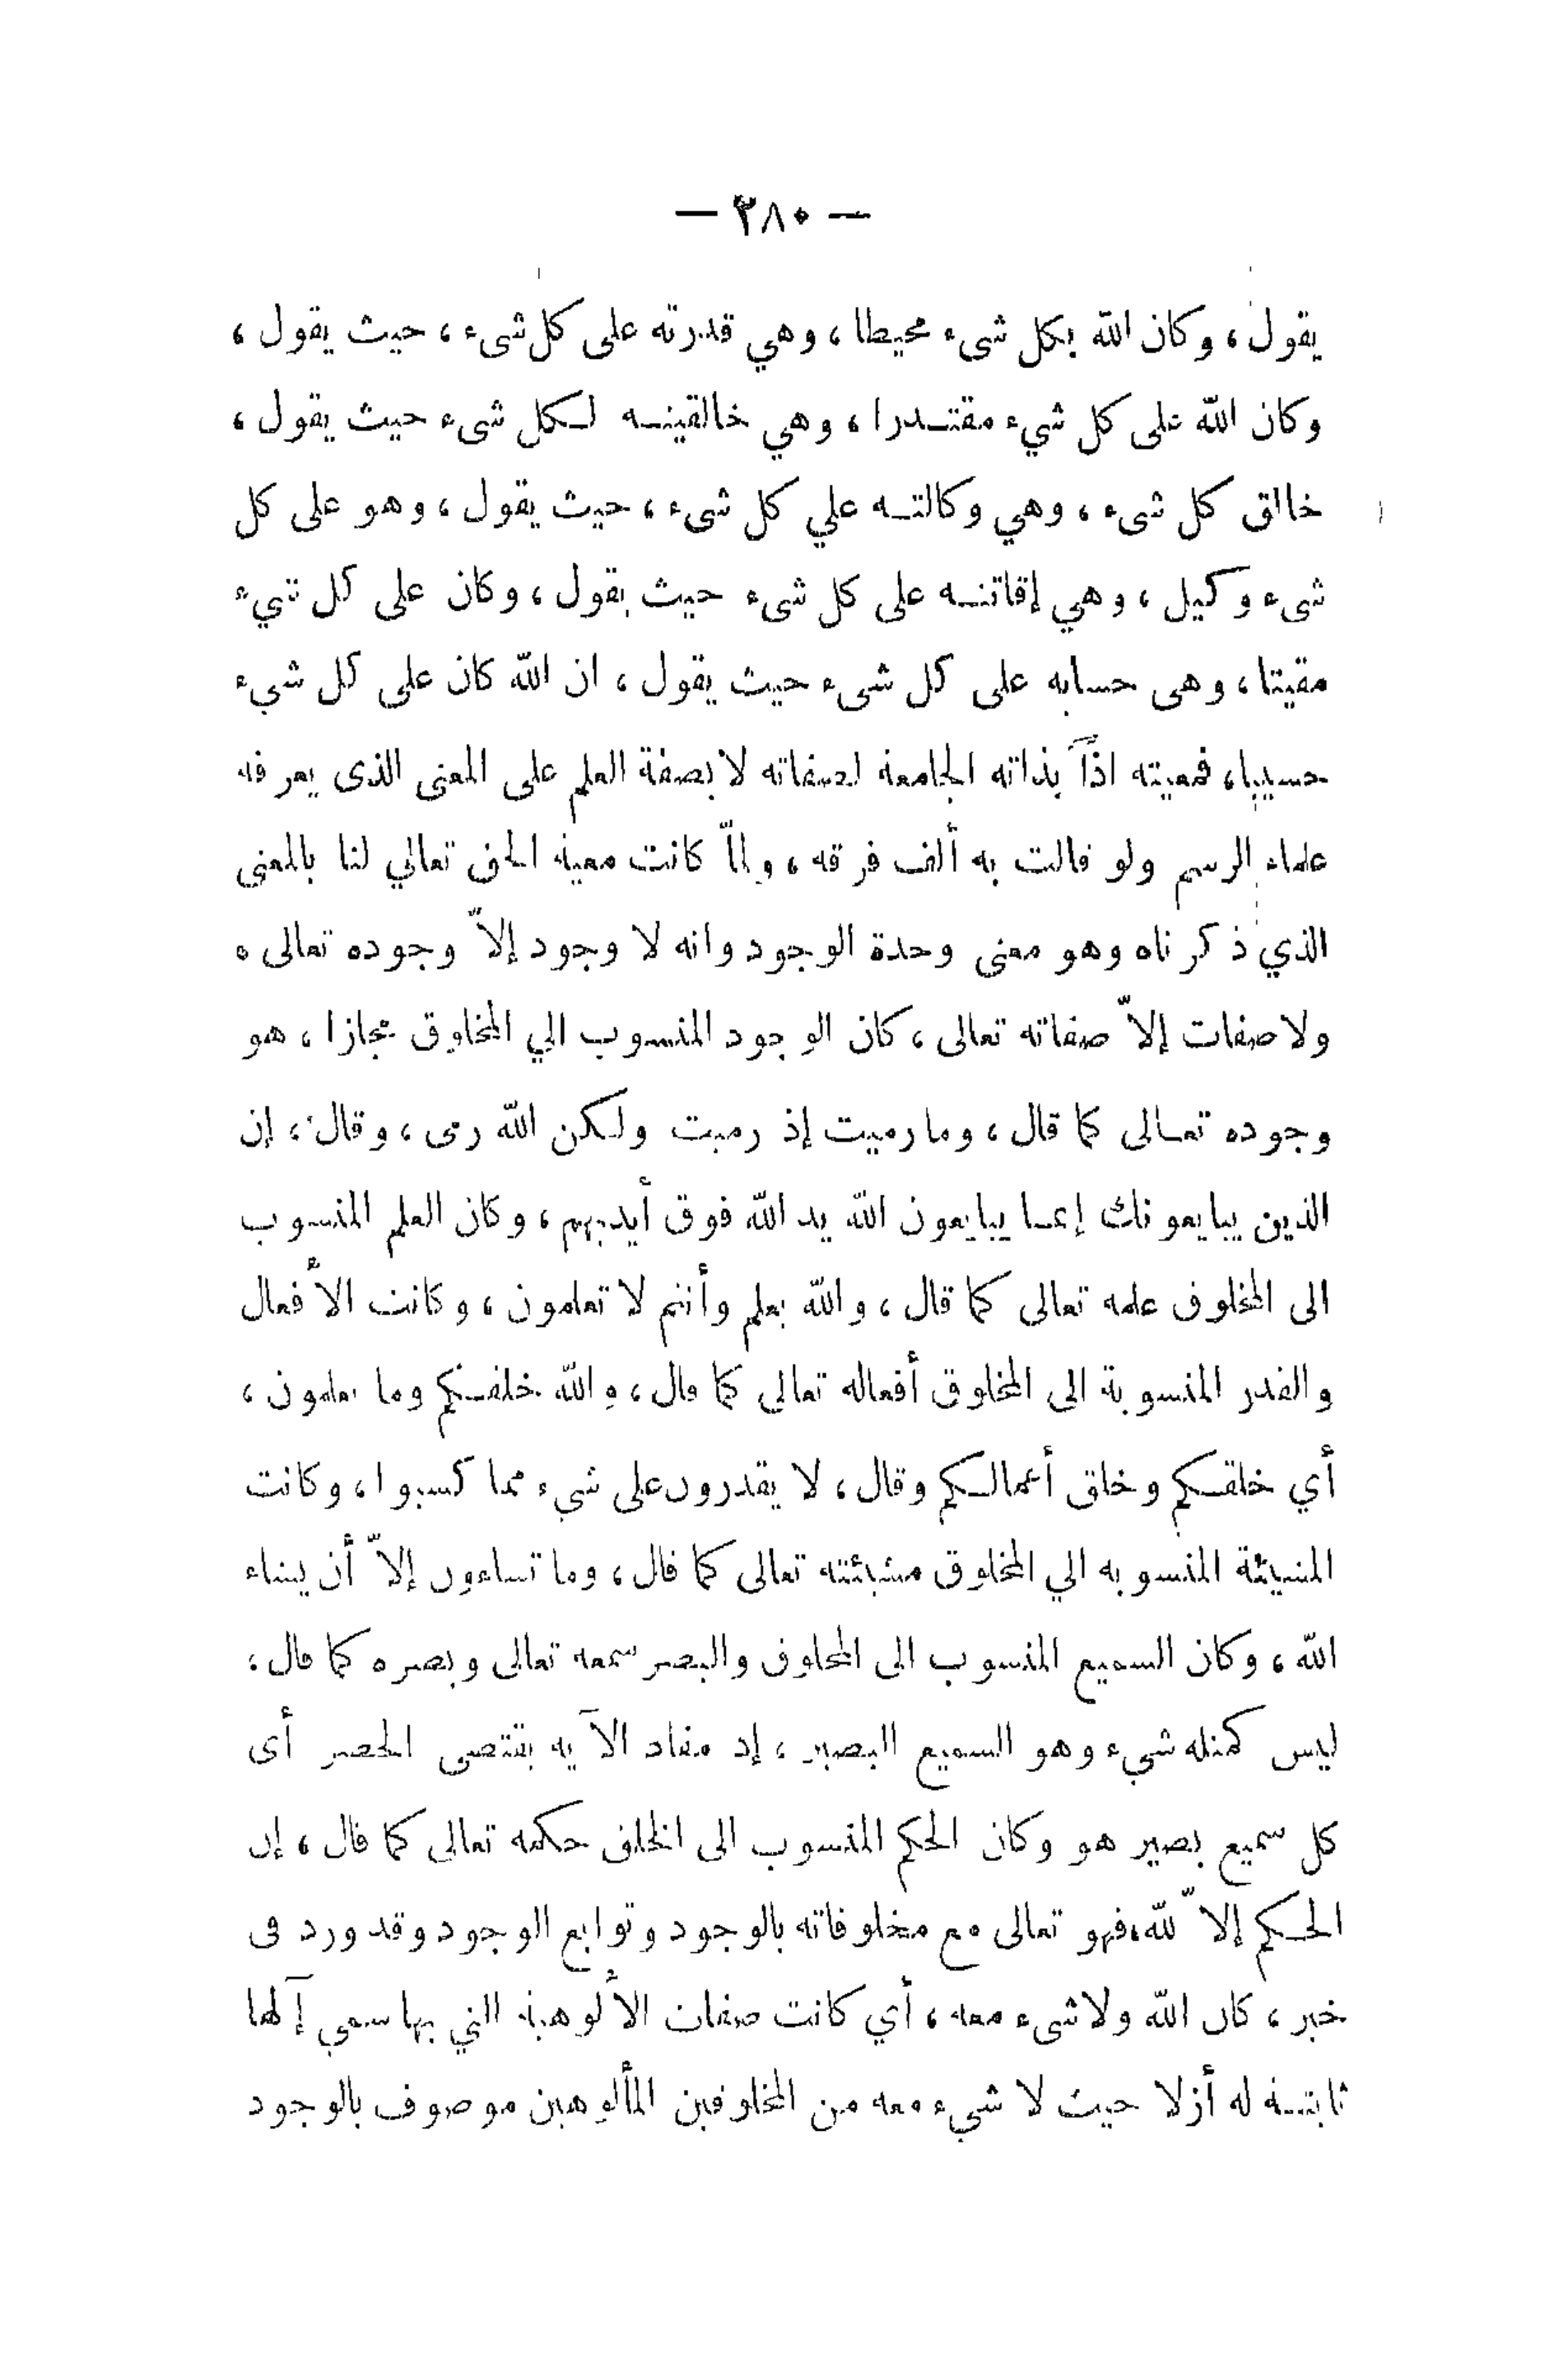 — ٣٨٠ —
يقول، وكان الله بكل شىء محيطا، وهي قدرته على كل شىء، حيث يقول،
وكان الله على كل شيء مقتدرا، وهي خالقيته لكل شىء حيث يقول،
خالق كل شىء، وهي وكالته علي كل شىء، حيث يقول، وهو على كل
شىء وكيل، وهي إقاتته على كل شىء حيث يقول، وكان على كل شيء
مقيتا، وهى حسابه على كل شىء حيث يقول، ان الله كان على كل شيء
حسيبا، فمعيته اذًا بذاته الجامعة لصفاته لا بصفة العلم على المعنى الذى يعرفه
علماء الرسم ولو قالت به ألف فرقه، ولمّا كانت معية الحق تعالي لنا بالمعنى
الذي ذكرناه وهو معنى وحدة الوجود وانه لا وجود إلاّ وجوده تعالى ه
ولا صفات إلاّ صفاته تعالى، كان الوجود المنسوب الي المخلوق مجازا، هو
وجوده تعالى كما قال، وما رميت إذ رميت ولكن الله رمى، وقال، إن
الذين يبايعونك إنما يبايعون الله يد الله فوق أيديهم، وكان العلم المنسوب
الى المخلوق علمه تعالى كما قال، والله يعلم وأنتم لا تعلمون، وكانت الأفعال
والقدر المنسوبة الى المخلوق أفعاله تعالى كما قال، والله خلقكم وما تعلمون،
أي خلقكم وخلق أعمالكم وقال، لا يقدرون على شيء مما كسبوا، وكانت
المشيئة المنسوبه الي المخلوق مشيئته تعالى كما قال، وما تشاءون إلاّ أن يشاء
الله، وكان السميع المنسوب الى المخلوق والبصر سمعه تعالى وبصره كما قال،
ليس كمثله شيء وهو السميع البصير، إذ مفاد الآيه يقتضى الحصر أى
كل سميع بصير هو وكان الحكم المنسوب الى الخلق حكمه تعالى كما قال، إن
الحكم إلاّ لله، فهو تعالى مع مخلوقاته بالوجود وتوابع الوجود وقد ورد فى
خبر، كان الله ولا شىء معه، أي كانت صفات الألوهية التي بها سمي آلها
ثابتة له أزلا حيث لا شيء معه من المخلوقين المألوهين موصوف بالوجود